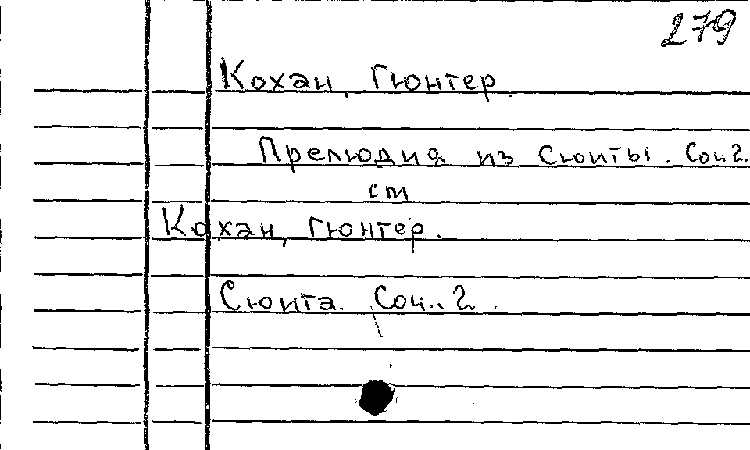 279
Кохан, Гюнтер.
Прелюдия из Сюиты. Соч. 2.
см
Кохан, Гюнтер.
Сюита. Соч. 2.